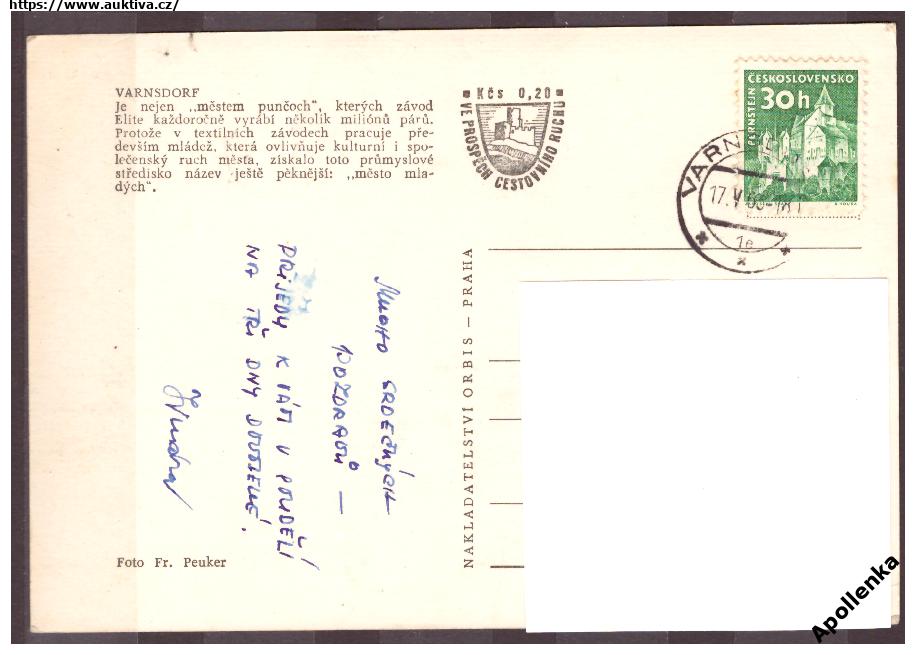 https://www.auktiva.cz/
VARNSDORF
Je nejen „městem punčoch“, kterých závod
Elite každoročně vyrábí několik miliónů párů.
Protože v textilních závodech pracuje pře-
devším mládež, která ovlivňuje kulturní i spo-
lečenský ruch města, získalo toto průmyslové
středisko název ještě pěknější: „město mla-
dých“.
Kčs 0,20
VE PROSPĚCH CESTOVNÍHO RUCHU
ČESKOSLOVENSKO
30h
PERNŠTEJN
VARN
17.V
1e
MNOHO SRDEČNÝCH
POZDRAVŮ —
PŘIJEDU K VÁM V PONDĚLÍ
NA TŘI DNY DOVOLENÉ.
NAKLADATELSTVÍ ORBIS — PRAHA
Foto Fr. Peuker
Apollenka